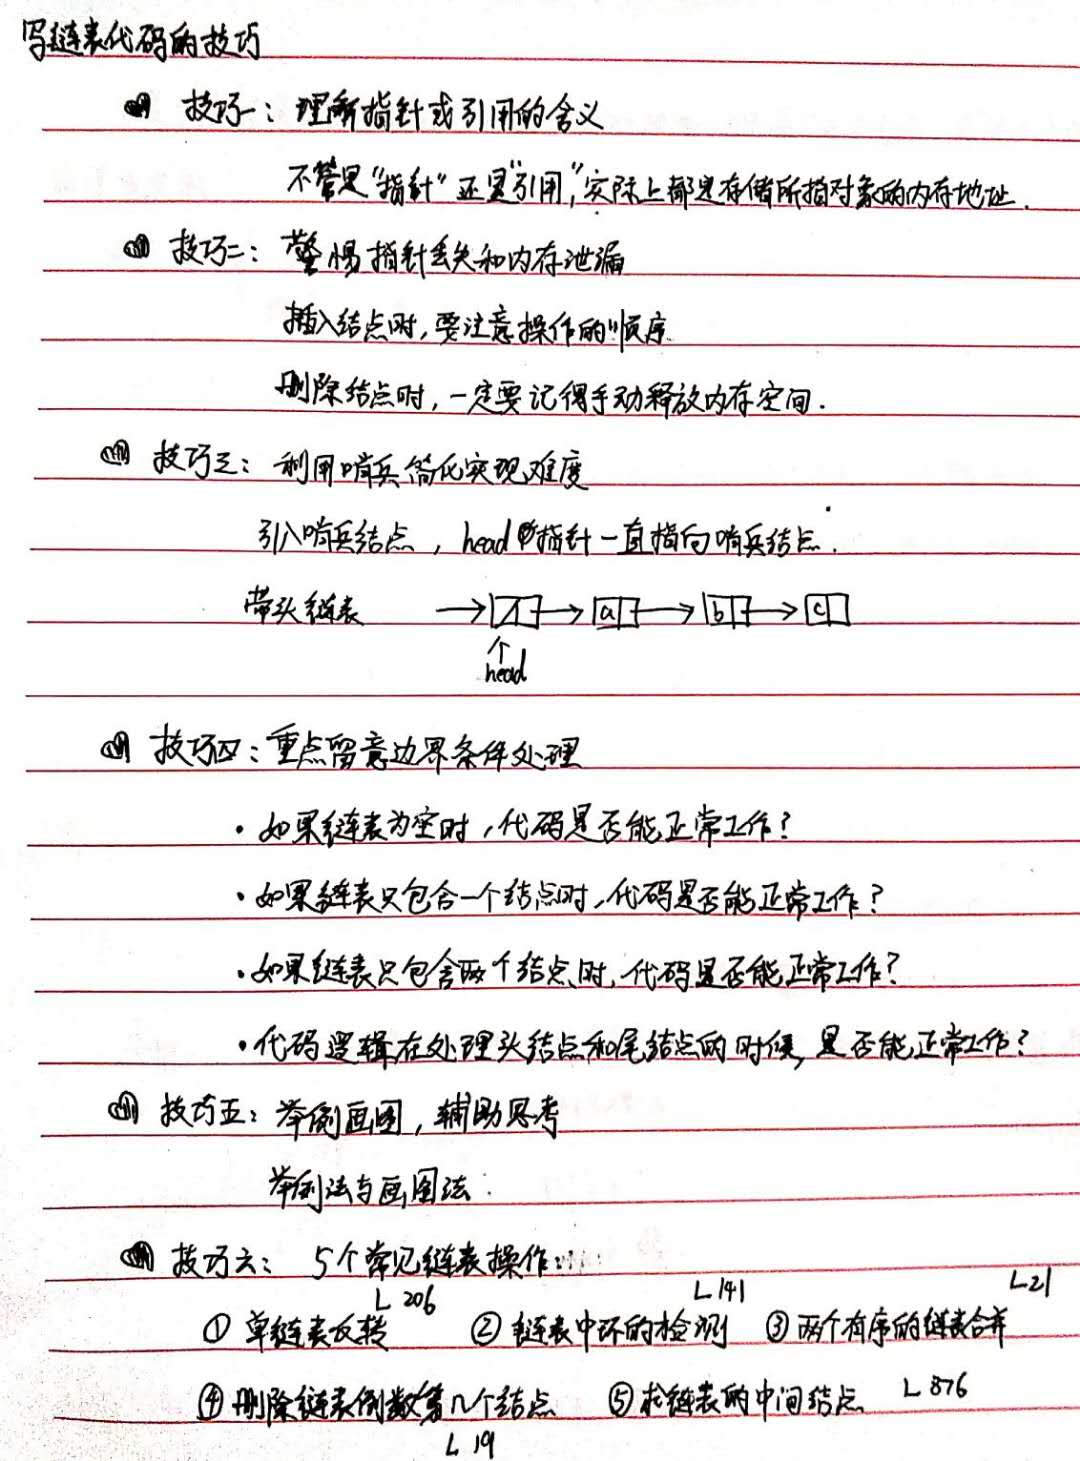 写链表代码的技巧
技巧一：理解指针或引用的含义
不管是“指针”还是“引用”，实际上都是存储所指对象的内存地址.
技巧二：警惕指针丢失和内存泄漏
插入结点时，要注意操作的顺序.
删除结点时，一定要记得手动释放内存空间.
技巧三：利用哨兵简化实现难度
引入哨兵结点，head指针一直指向哨兵结点.
带头链表 a b c
head
技巧四：重点留意边界条件处理
·如果链表为空时，代码是否能正常工作？
·如果链表只包含一个结点时，代码是否能正常工作？
·如果链表只包含两个结点时，代码是否能正常工作？
·代码逻辑在处理头结点和尾结点的时候，是否能正常工作？
技巧五：举例画图，辅助思考
举例法与画图法.
技巧六：5个常见链表操作：
L 206 L 141 L21
①单链表反转 ②链表中环的检测 ③两个有序的链表合并
④删除链表倒数第n个结点 ⑤求链表的中间结点 L 876
L 19